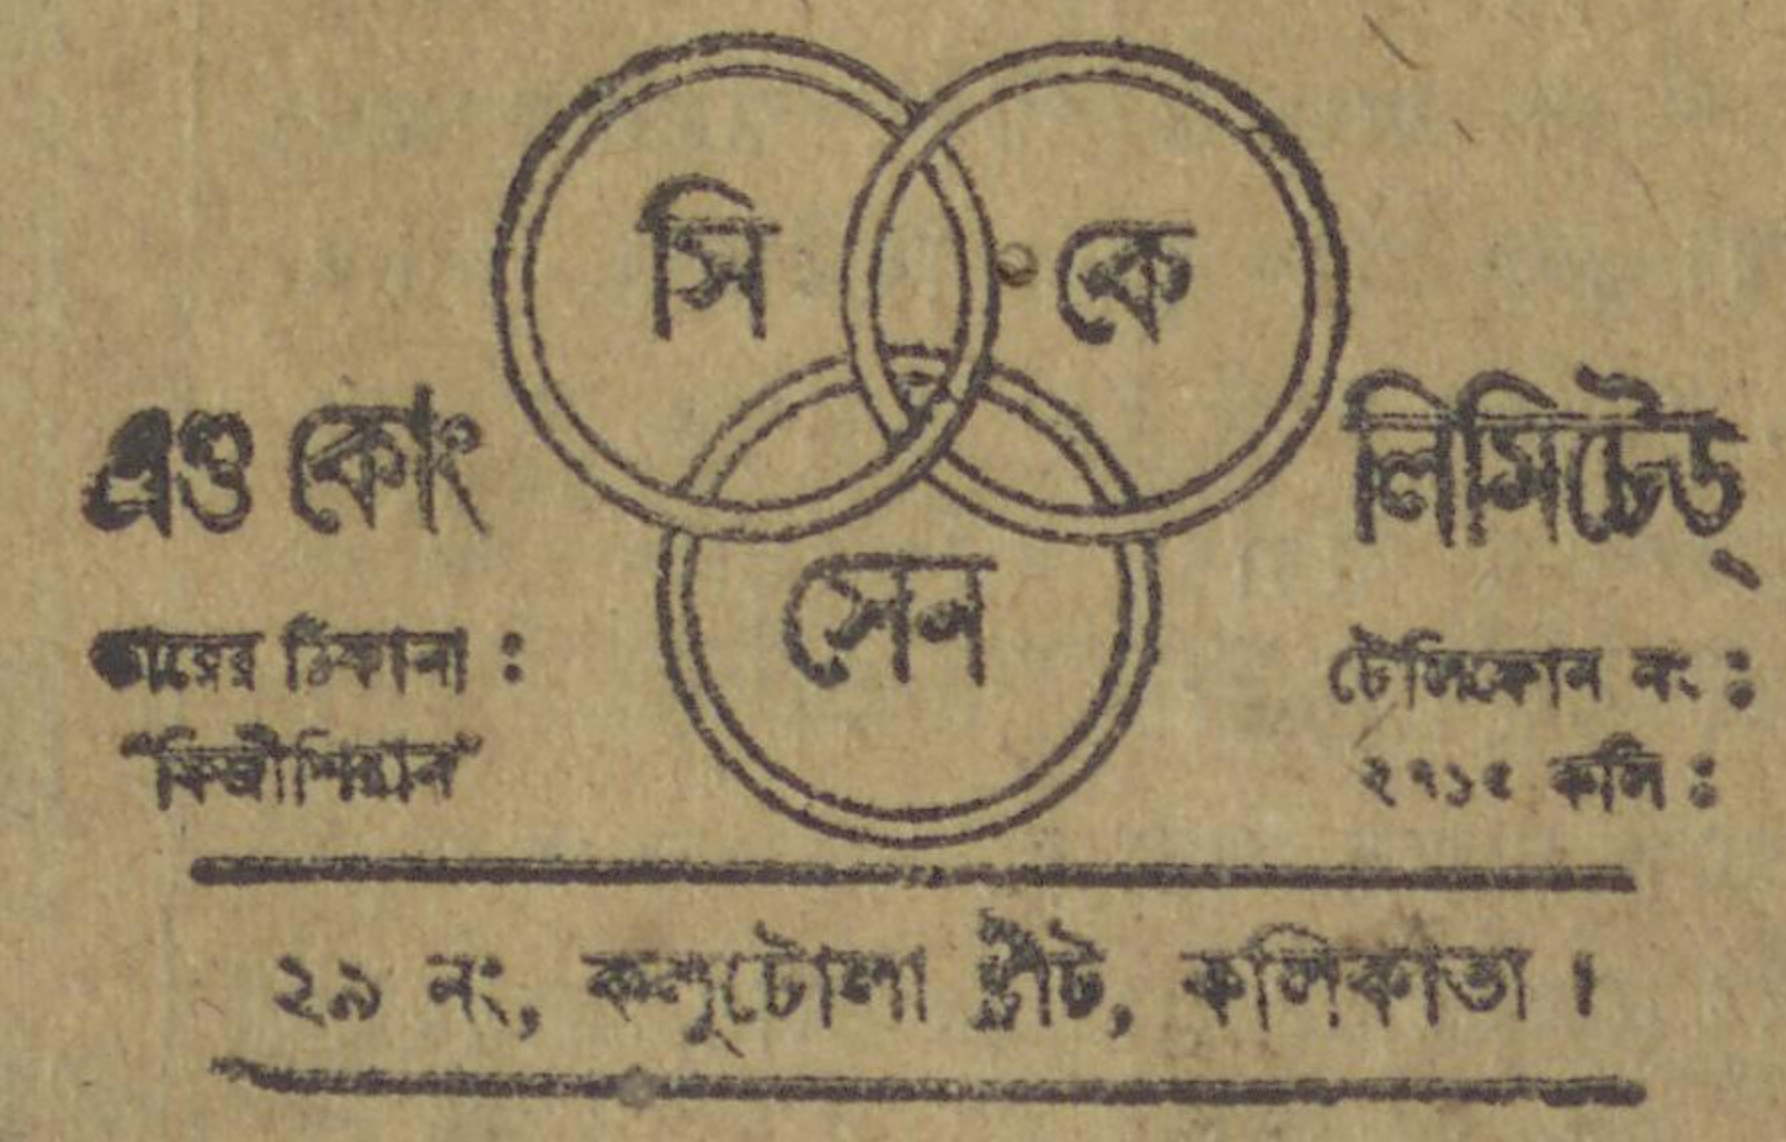 সি কে
সেন
এণ্ড কোং লিমিটেড্
তারের ঠিকানা :
টেলিফোন নং :
কলি :
২৯ নং, কলুটোলা ষ্ট্রীট, কলিকাতা ।